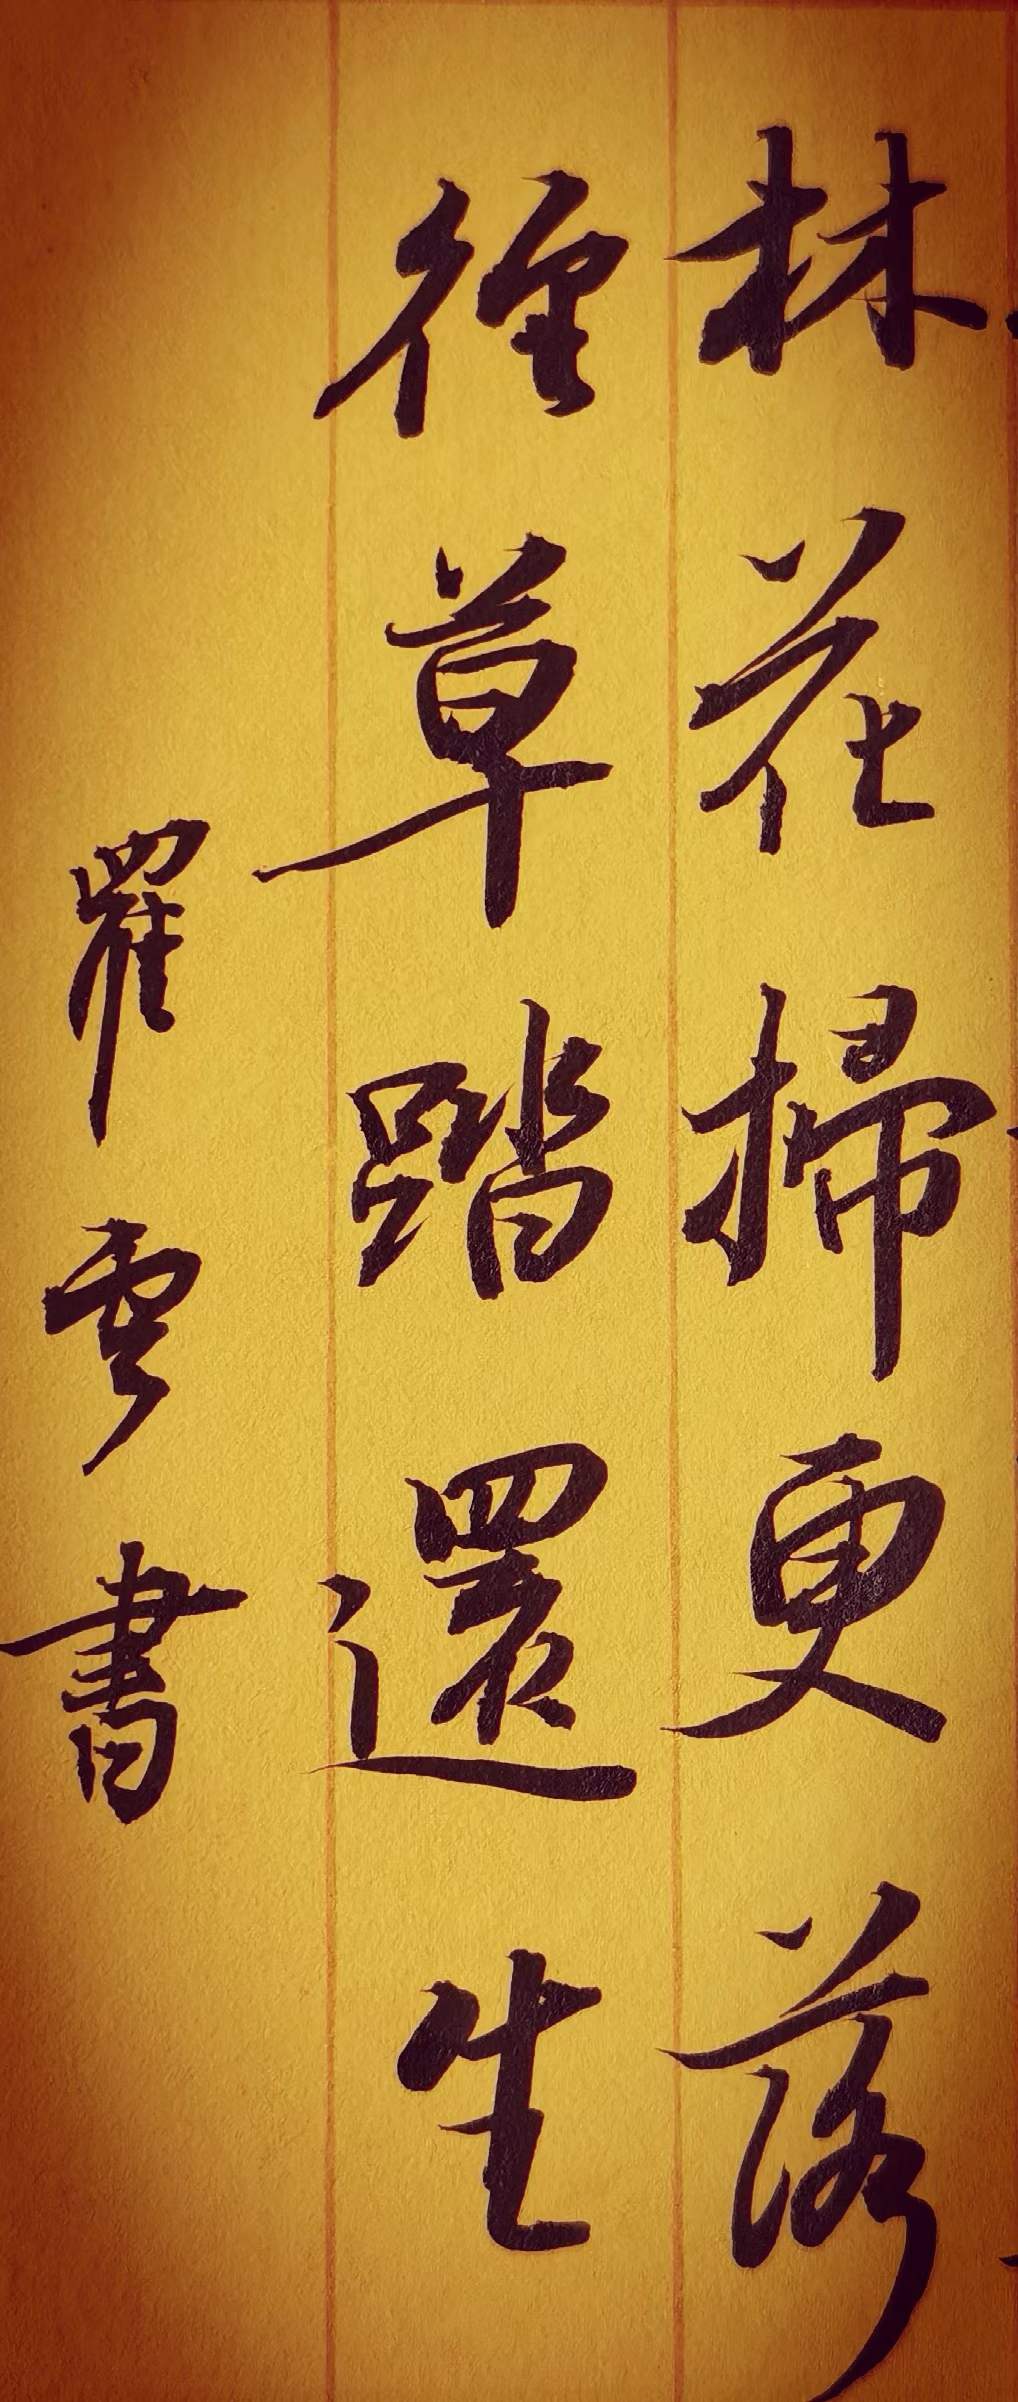 林花掃更落
徑草踏還生
羅雲書